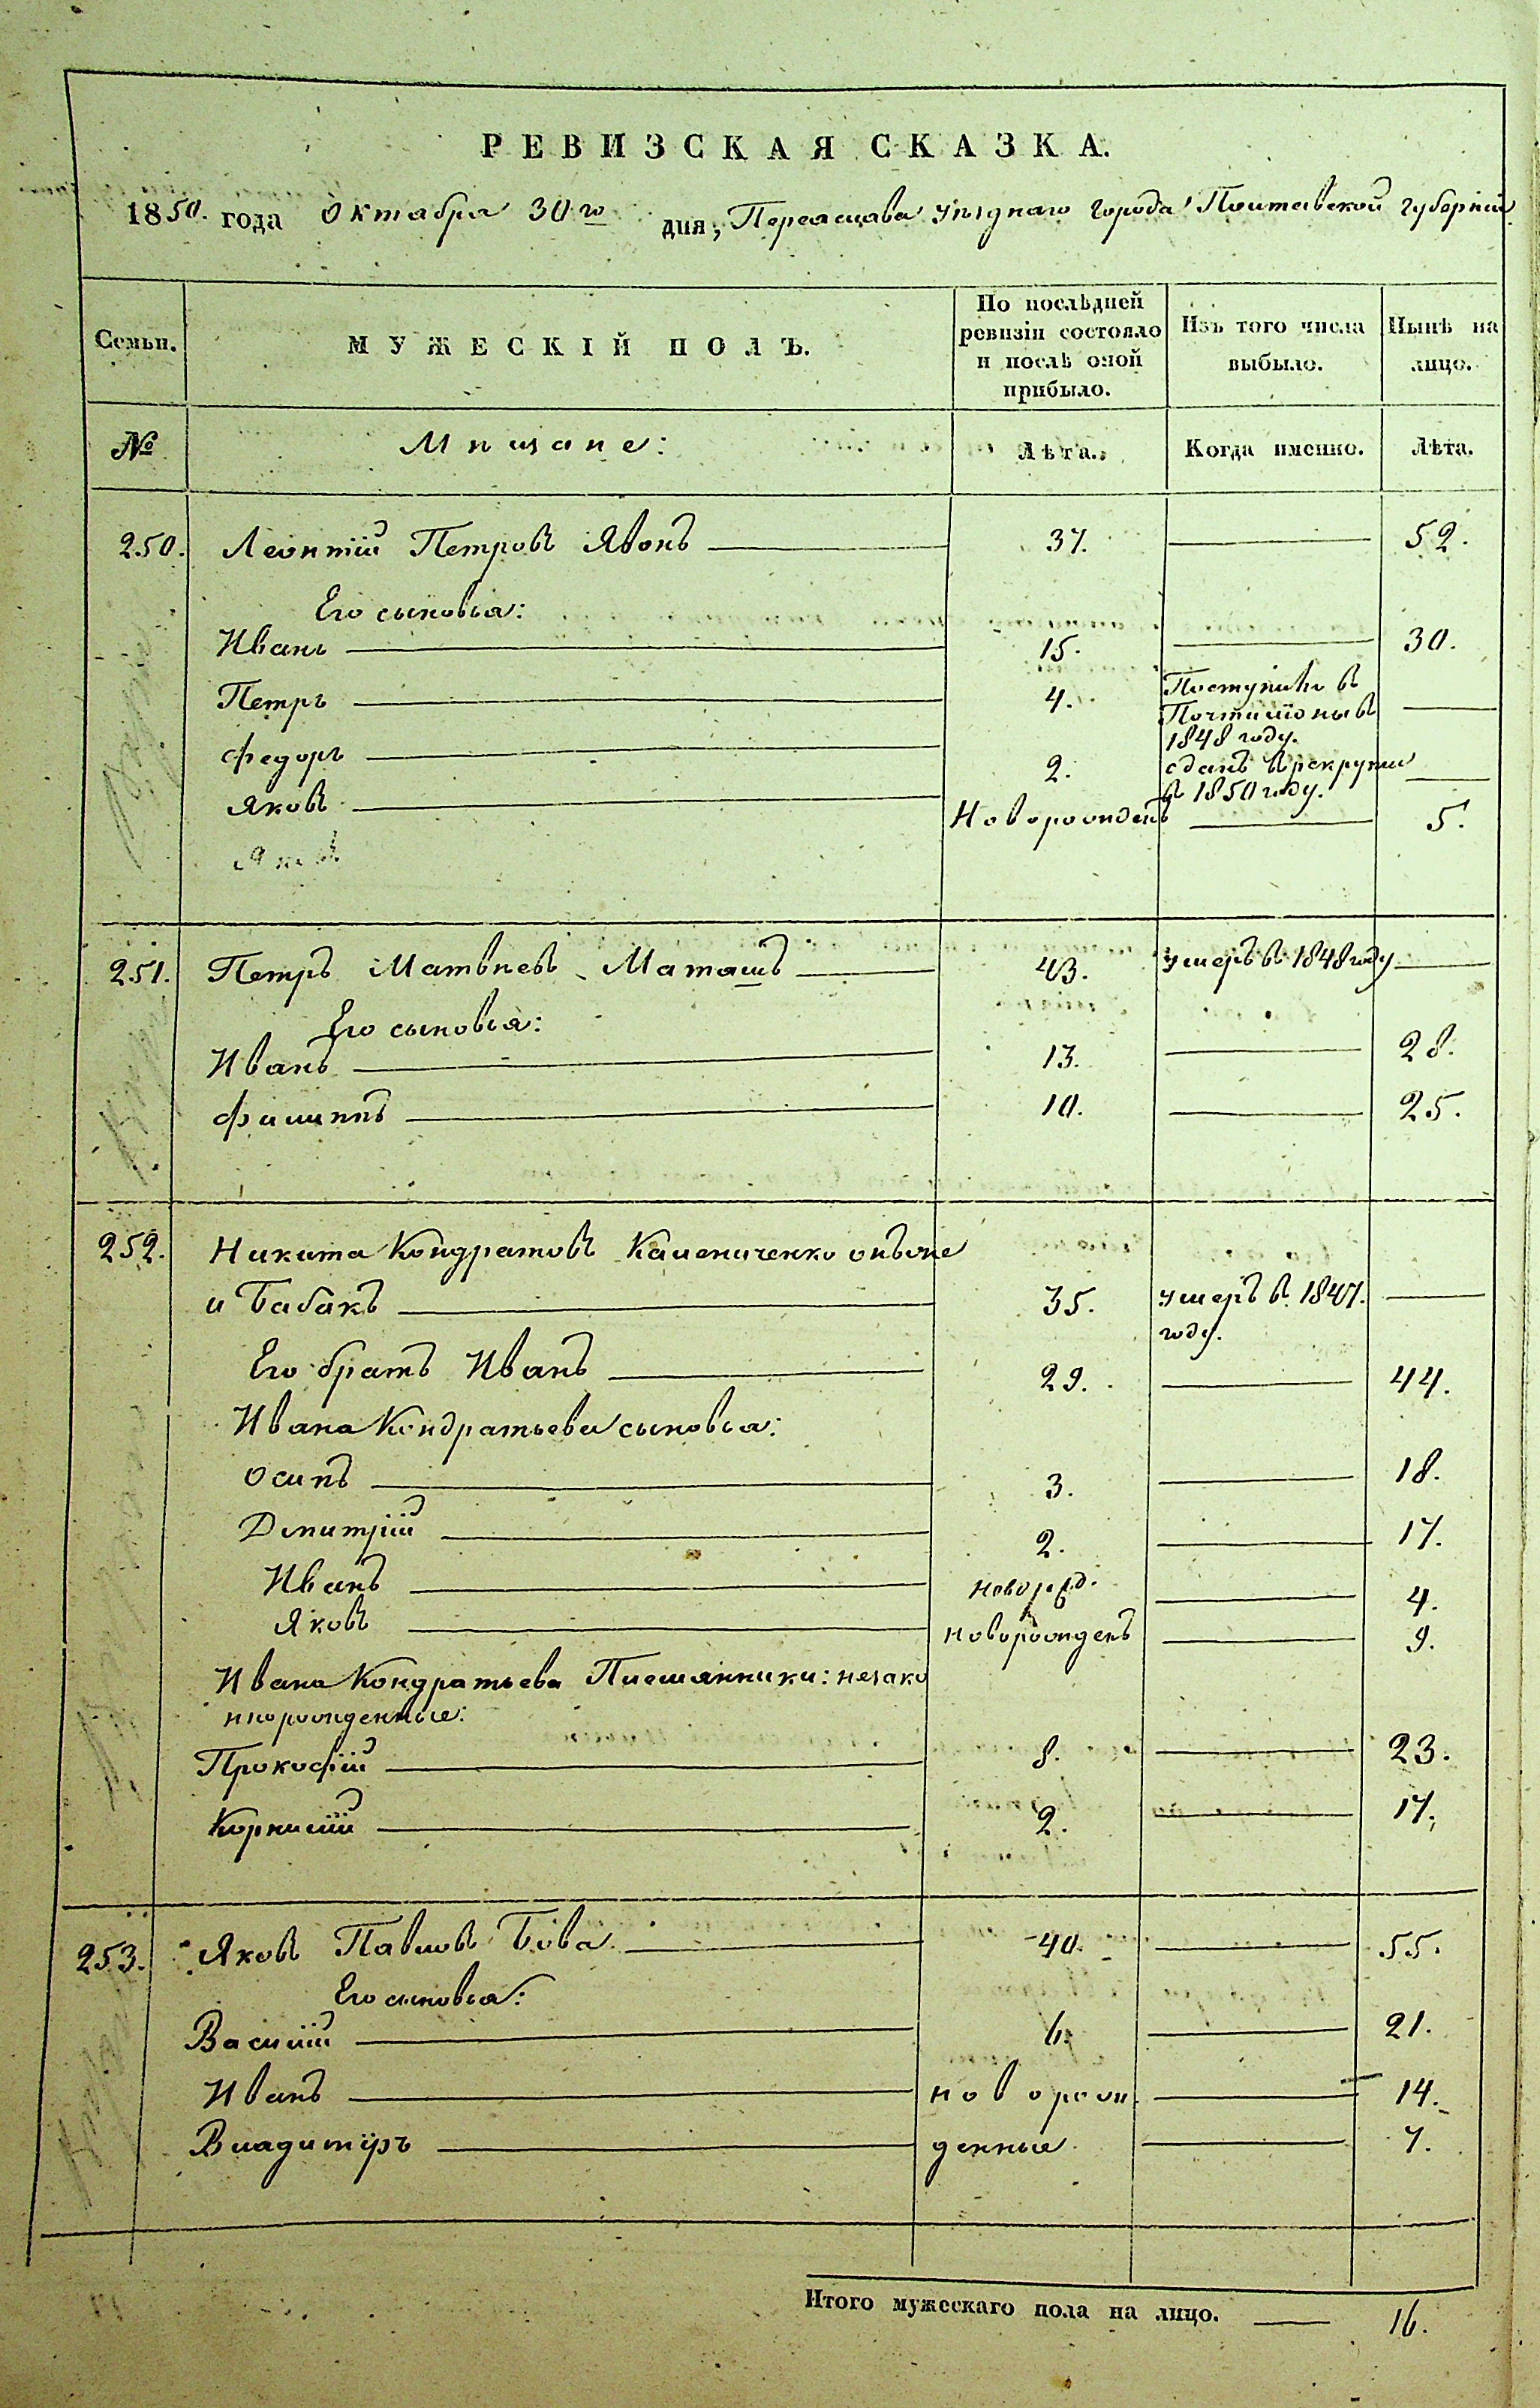 РЕВИЗСКАЯ СКАЗКА.
1850. года Октября 30го дня, Переяслава уѣзднаго города Полтавской губерніи
Семьи. МУЖЕСКІЙ ПОЛЪ. По послѣдней ревизіи состояло и послѣ оной прибыло. Изъ того числа выбыло. Нынѣ на лицо.
№ Мѣщане: Лѣта. Когда именно. Лѣта.
250. Леонтій Петровъ Явонъ 37. 52.
Его сыновья:
Иванъ 15. 30.
Петръ 4. Поступилъ въ Почтиліоны въ 1848 году.
Федоръ 2. сданъ в рекруты в 1850 году.
Яковъ Новорожденъ 5.
251. Петръ Матвѣевъ Маташъ 43. умеръ в 1848 году
Его сыновья:
Иванъ 13. 28.
Филиппъ 10. 25.
252. Никита Кондратовъ Калениченко онъже
и Бабакъ 35. умеръ в 1847.
году.
Его братъ Иванъ 29. 44.
Ивана Кондратьева сыновья:
Осипъ 3. 18.
Дмитрій 2. 17.
Иванъ новоржд. 4.
Яковъ новорожденъ 9.
Ивана Кондратьева Племянники: незако
ннорожденные:
Прокофій 8. 23.
Корнилій 2. 17.
253. Яковъ Павловъ Бова 40. 55.
Его сыновья:
Василій 6. 21.
Иванъ новорож 14.
Владимиръ денные 7.
Итого мужескаго пола на лицо. 16.